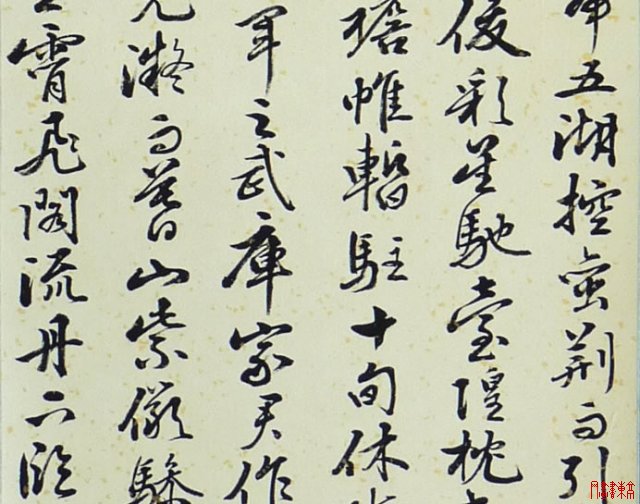 五湖控蠻荊而引
俊彩星馳臺隍枕
襜帷暫駐十旬休
軍之武庫家君作
光凝而暮山紫儼驂
霄飛閣流丹下臨